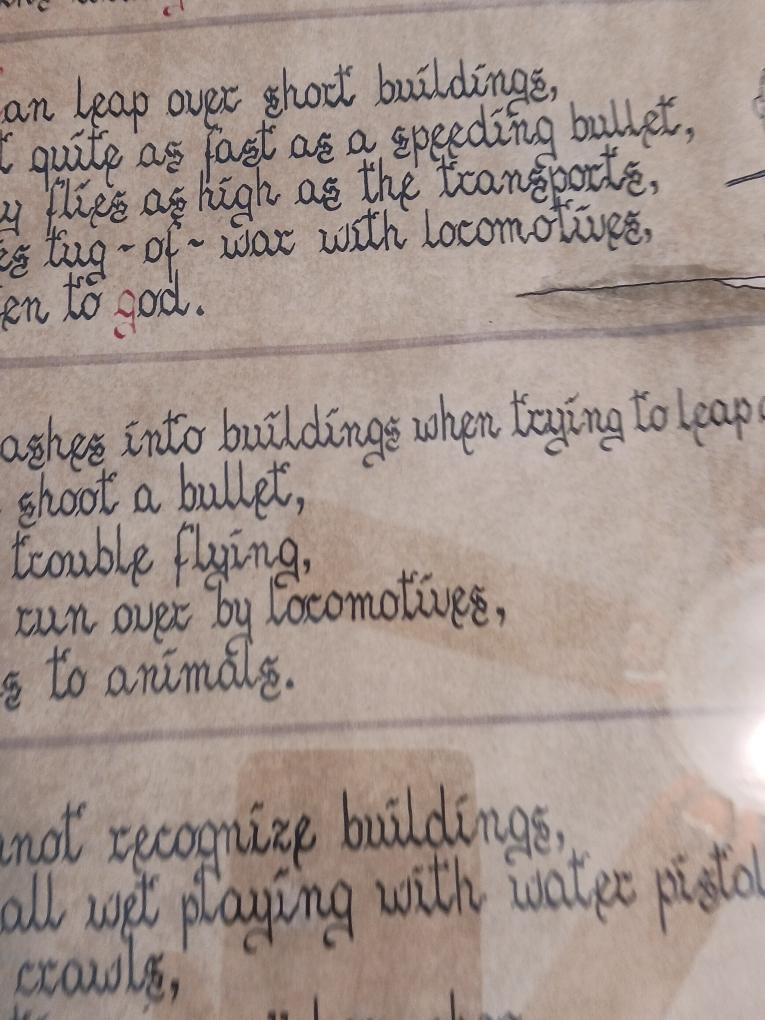 an leap over short buildings,
quite as fast as a speeding bullet,
y flies as high as the transports,
es tug-of-war with locomotives,
en to god.
ashes into buildings when trying to leap
shoot a bullet,
trouble flying,
run over by locomotives,
s to animals.
nnot recognize buildings,
all wet playing with water pistol
crawls,